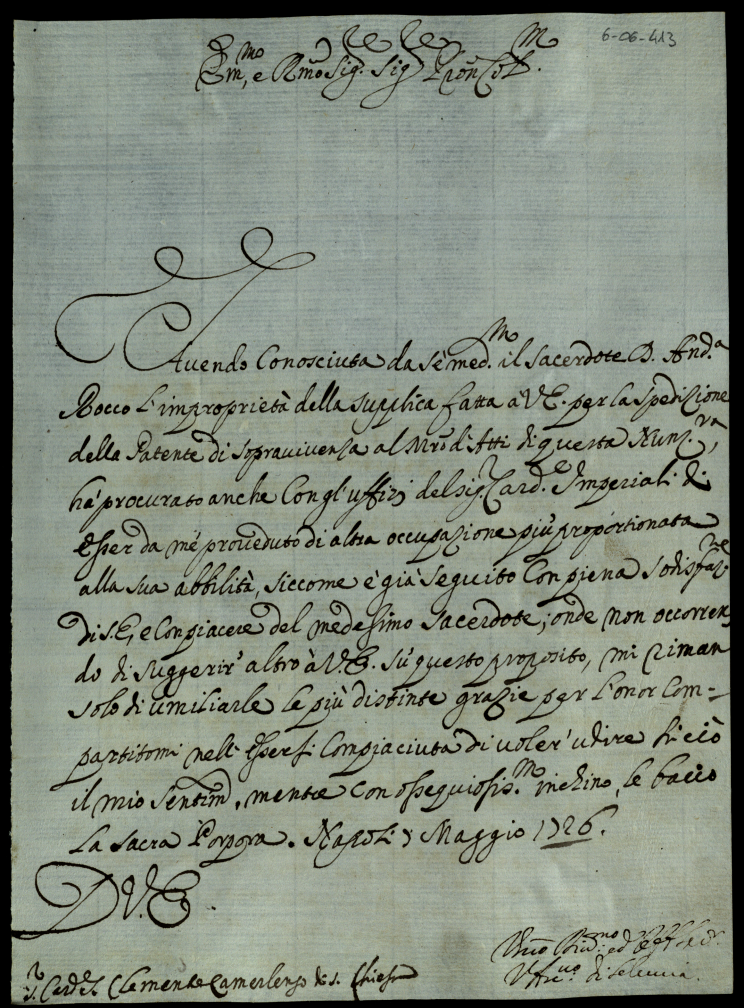 6-06-413
Em.mo e R.mo Sig.re Sig.re P.ron Col.mo
Avendo Conosciuta da sè med.mo il Sacerdote D. And.a
Rocco l'improprietà della supplica fatta à V.E. per la spedizione
della Patente di sopravivenza al Mro d'Atti di questa Nunz.ra,
hà procurato anche con gl'uffizi del Sig.r Card.e Imperiali di
esser da mè proveduto di altra occupazione più proportionata
alla sua abbilità, siccome è già seguito con piena sodisfaz.ne
di S.E, e Con piacere del medesimo Sacerdote; onde non occorren
do di suggerir' altro à V.E. sù questo proposito, mi riman
solo di umiliarle le più distinte grazie per l'onor com=
partitomi nell'essersi Compiaciuta di voler' udire sù ciò
il mio sentim.o, mentre con ossequiosis.mo inchino, le bacio
la Sacra Porpora. Napoli Maggio 1726.
D V. E
S.r Card.e S. Clemente Camerlengo di S. Chiesa
di Seleucia